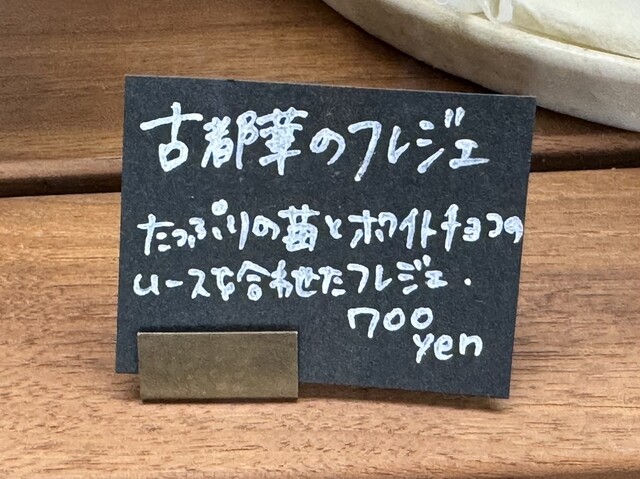 古都華のフレジェ
たっぷりの苺とホワイトチョコの
ムースを合わせたフレジェ.
700
yen